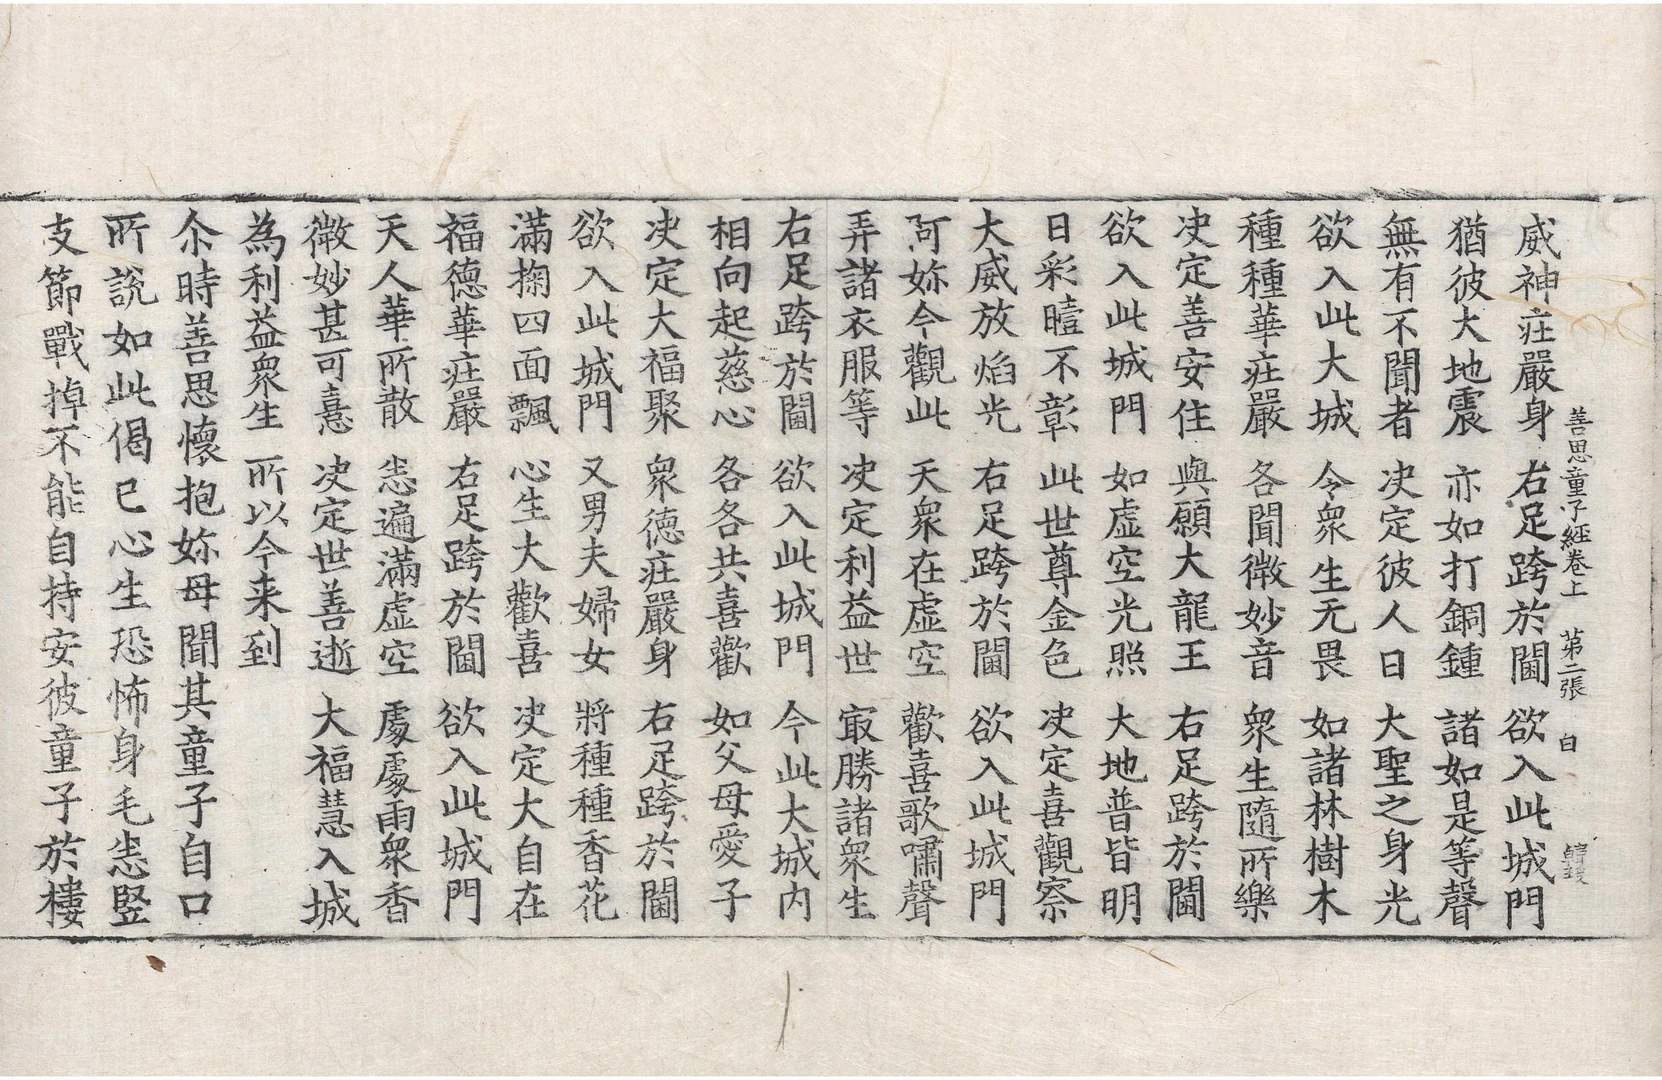 善思童子經卷上　第二張　白
威神㽵嚴身　右足跨於閫　欲入此城門
猶彼大地震　亦如打銅鍾　諸如是等聲
無有不聞者　决定彼人日　大聖之身光
欲入此大城　令衆生无畏　如諸林樹木
種種華㽵嚴　各聞微妙音　衆生隨所樂
决定善安住　與願大龍王　右足跨於閫
欲入此城門　如虛空光照　大地普皆明
日彩曀不彰　此世尊金色　决定喜觀察
大威放焰光　右足跨於閫　欲入此城門
阿妳今觀此　天衆在虛空　歡喜歌嘯聲
弄諸衣服等　决定利益世　㝡勝諸衆生
右足跨於閫　欲入此城門　今此大城内
相向起慈心　各各共喜歡　如父母愛子
决定大福聚　衆德㽵嚴身　右足跨於閫
欲入此城門　又男夫婦女　將種種香花
滿掬四面飄　心生大歡喜　决定大自在
福德華㽵嚴　右足跨於閫　欲入此城門
天人華所散　悉遍滿虛空　處處雨衆香
微妙甚可憙　决定世善逝　大福慧入城
為利益衆生　所以今来到
尒時善思懷抱妳母聞其童子自口
所說如此偈已心生恐怖身毛悉竪
支節戰掉不能自持安彼童子於樓